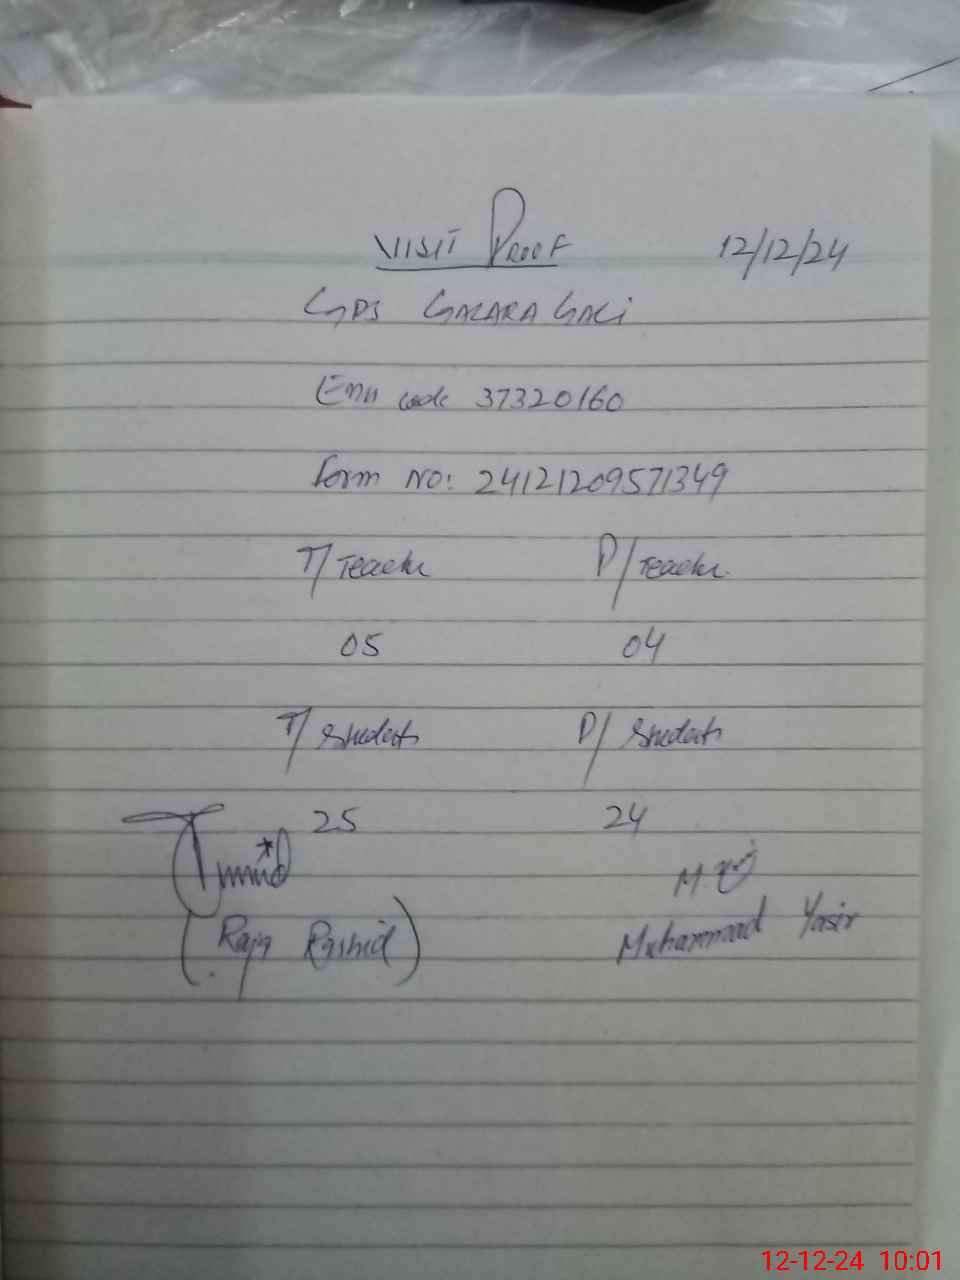 VISIT PROOF 12/12/24
GPS GALARA GALi
Emis code 37320160
Form NO: 24121209571349
T/Teacher P/Teacher
05 04
T/Students P/Students
25 24
(Raja Rashid) Muhammad Yasir
12-12-24 10:01